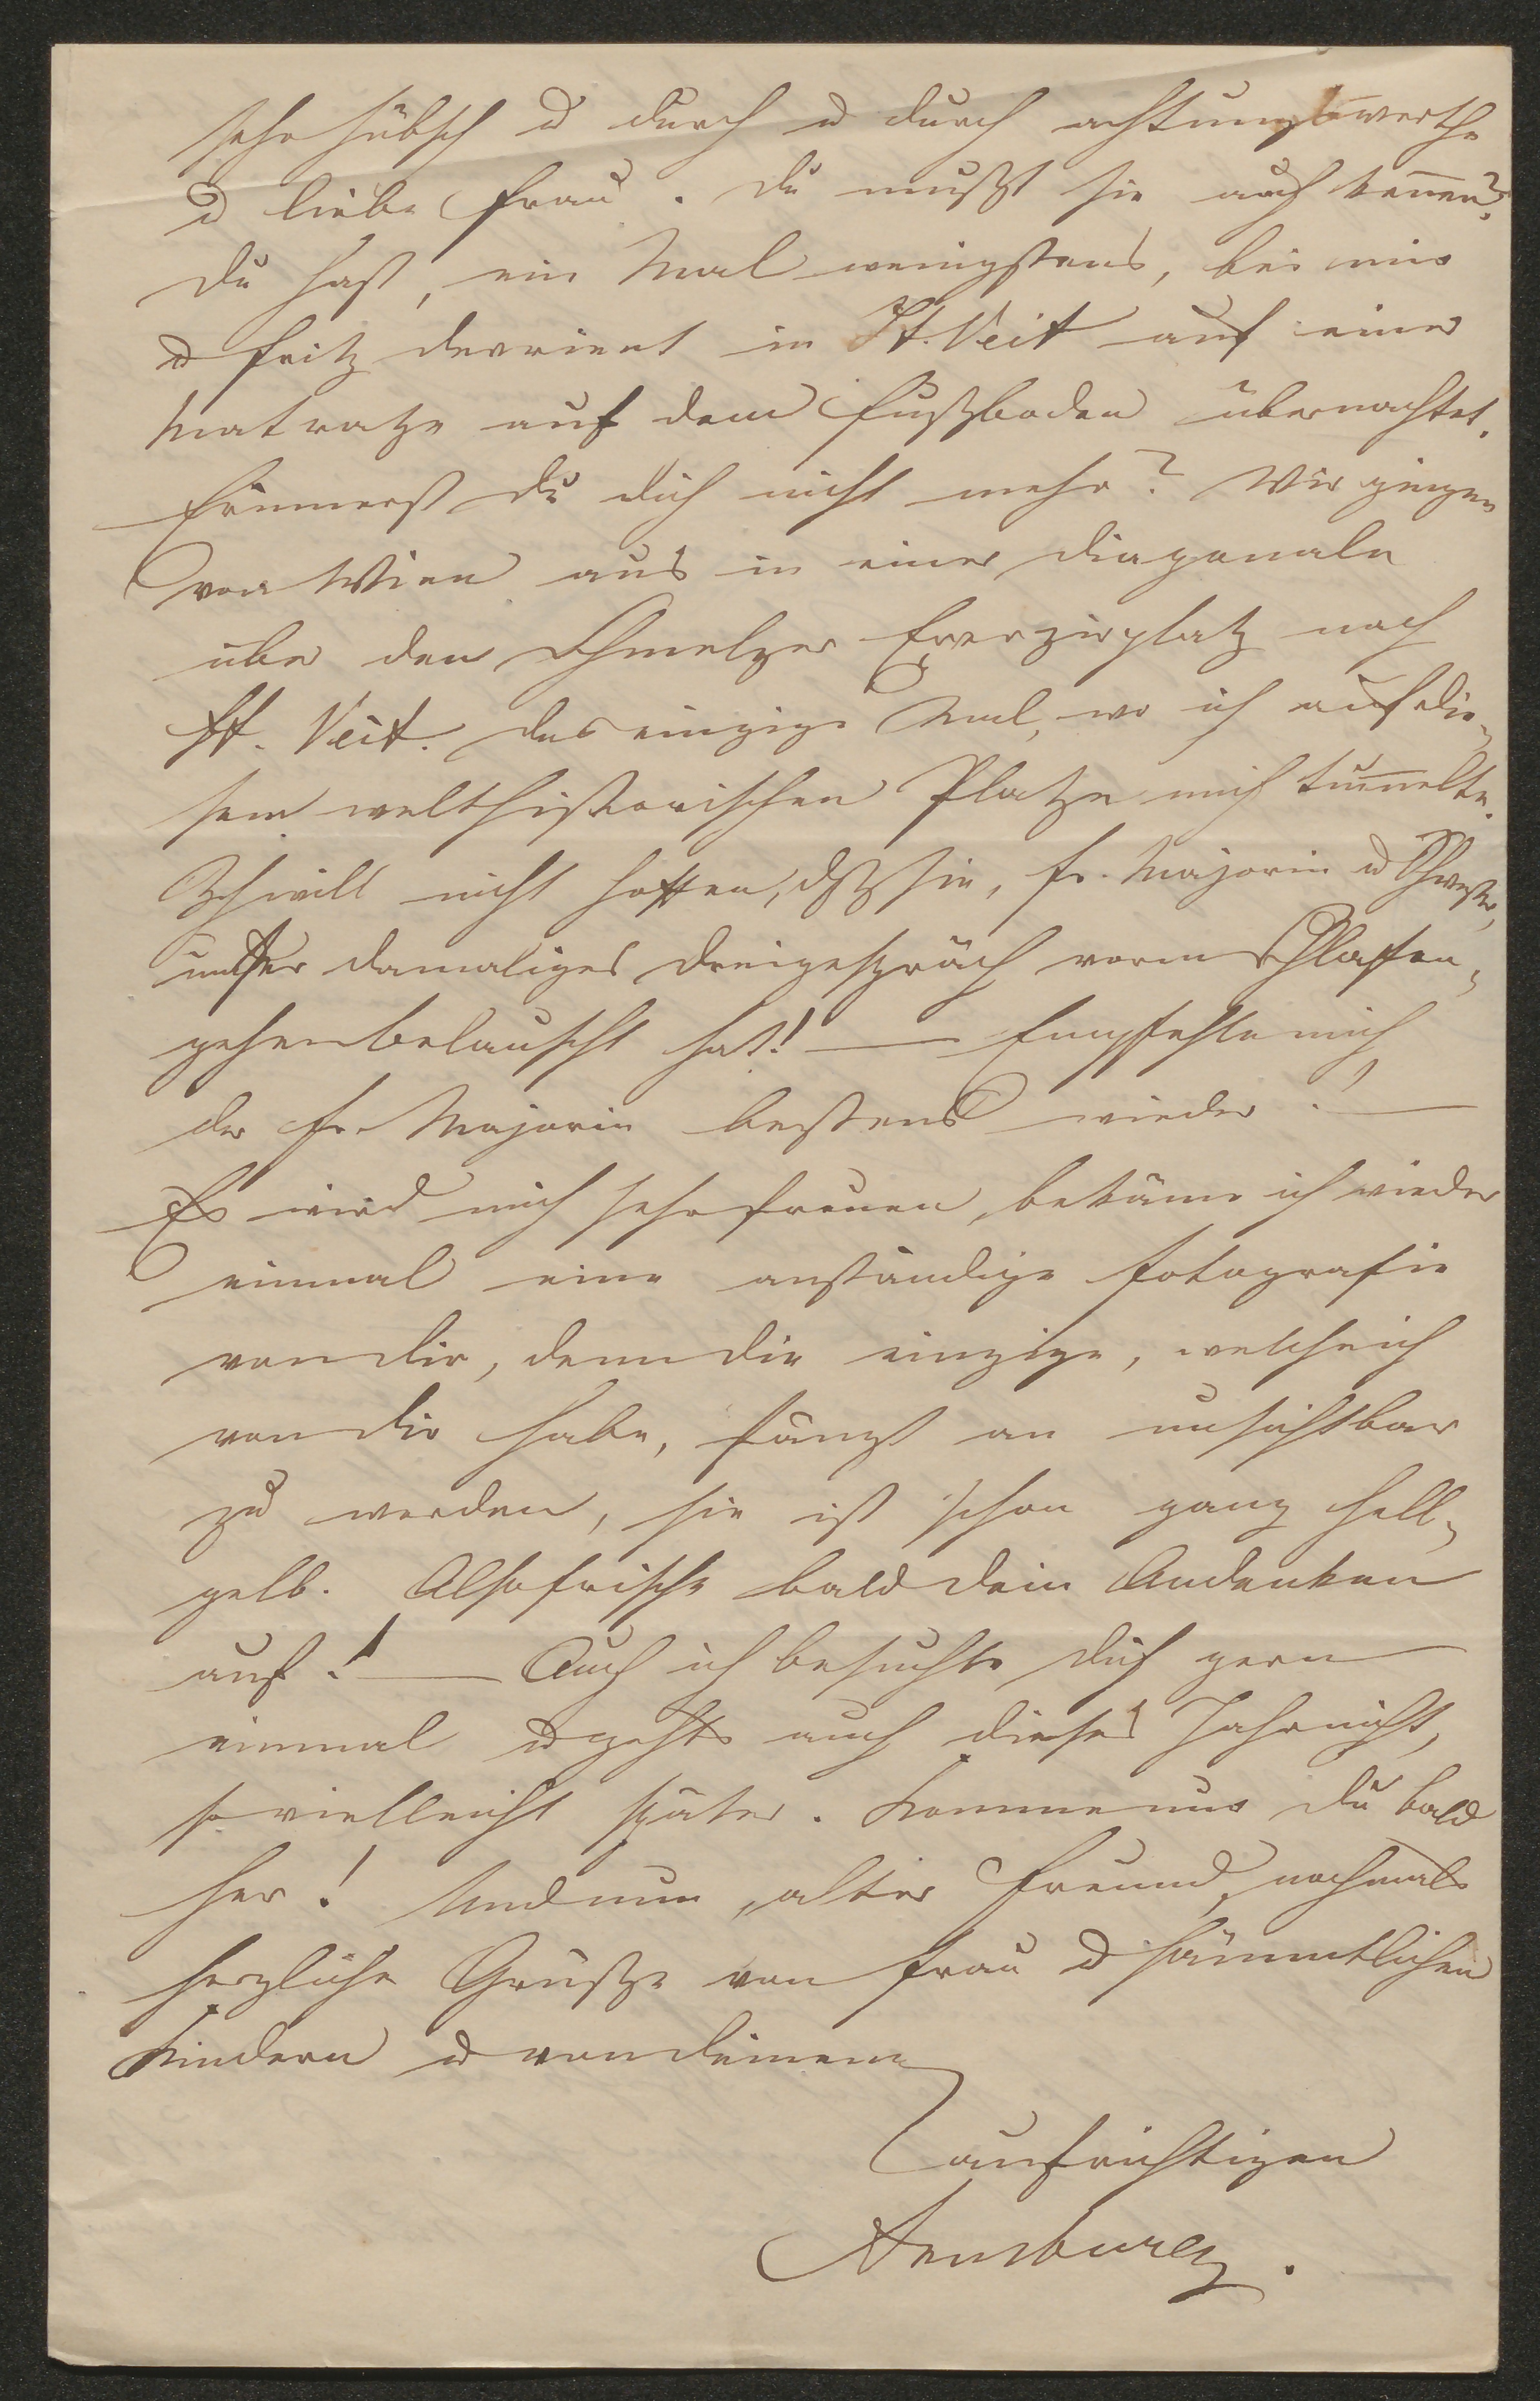 sehr hübsch u durch u durch achtungswerthe
u liebe Frau. Du mußt sie auch kennen?
Du hast, ein Mal wenigstens, bei mir
u Fritz Devrient in St. Veit auf einer
Matratze auf dem Fußboden übernachtet.
Erinnerst du dich nicht mehr? Wir gingen
von Wien aus in einer Diagonale
über den Schmelzer Exerzirplatz nach
St. Veit. Das einzige Mal, wo ich auf die-
sem welthistorischen Platze mich tummelte.
Ich will nicht hoffen, dß sie, Fr. Majorin u Schwester,
unser damaliges Dreigespräch vorm Schlafen-
gehen belauscht hat! — Empfehle mich
der Fr. Majorin bestens wieder! —
Es wird mich sehr freuen, bekäme ich wieder
einmal eine anständige Fotografie
von dir, denn die einzige, welche ich
von dir habe, fängt an unsichtbar
zu werden, sie ist schon ganz hell-
gelb. Also frische bald dein Andenken
auf! — Auch ich besuchte dich gern
einmal u gehts auch dieses Jahr nicht,
so vielleicht später. Komme nur du bald
her! Und nun, alter Freund, nochmals
herzliche Grüße von Frau u sämmtlichen
Kindern u von deinem
aufrichtigen